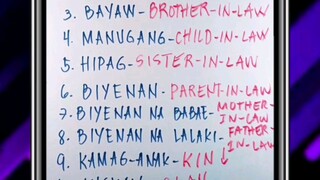 3. BAYAW-BROTHER-IN-LAW
4. MANUGANG-CHILD-IN-LAW
5. HIPAG-SISTER-IN-LAW
6. BIYENAN-PARENT-IN-LAW
7. BIYENAN NA BABAE-MOTHER-IN-LAW
8. BIYENAN NA LALAKI-FATHER-IN-LAW
9. KAMAG-ANAK-KIN